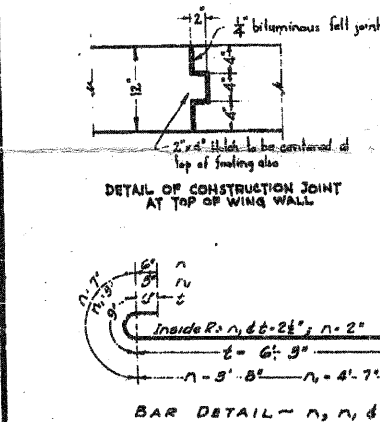 2"
1/4" bituminous felt joint
12"
4"
4"
4"
2"x4" Notch to be centered at
top of footing also
DETAIL OF CONSTRUCTION JOINT
AT TOP OF WING WALL
6" n
3" n₁
4" t
n = 7"
n₁ = 9"
9"
Inside R = n, & t = 2½"; n = 2"
t = 6'- 9"
n = 3'- 8" n₁ = 4'- 7"
BAR DETAIL ~ n, n, &